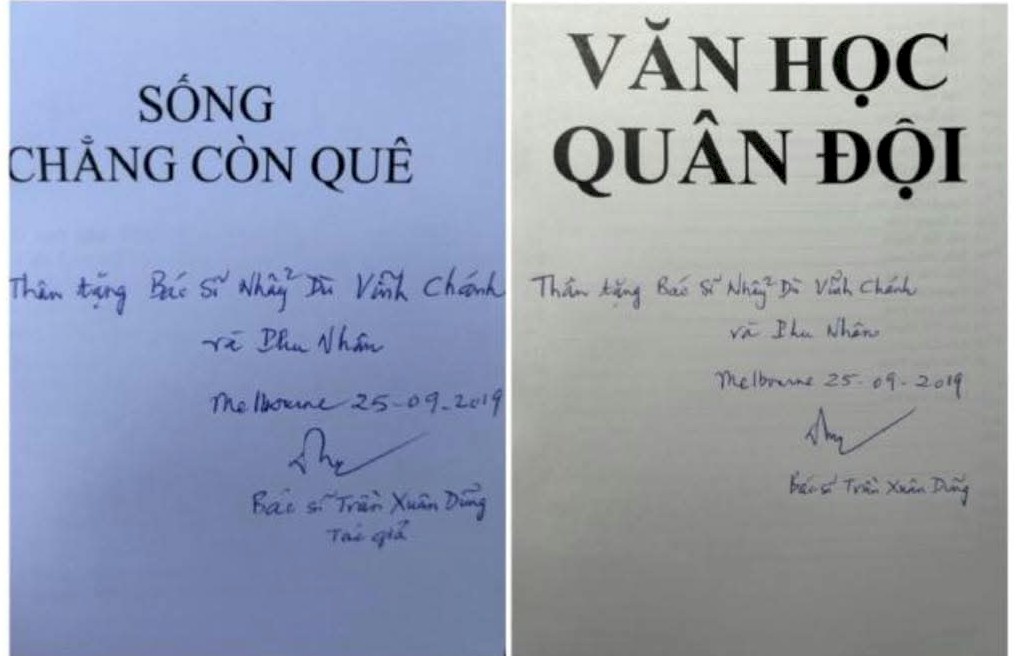 SỐNG
CHẲNG CÒN QUÊ
Thân tặng Bác Sĩ Nhẩy² Dù Vĩnh Chánh
và Phu Nhân
Melbourne 25-09-2019
Bác sĩ Trần Xuân Dũng
Tác giả
VĂN HỌC
QUÂN ĐỘI
Thân tặng Bác Sĩ Nhẩy² Dù Vĩnh Chánh
và Phu Nhân
Melbourne 25-09-2019
Bác sĩ Trần Xuân Dũng